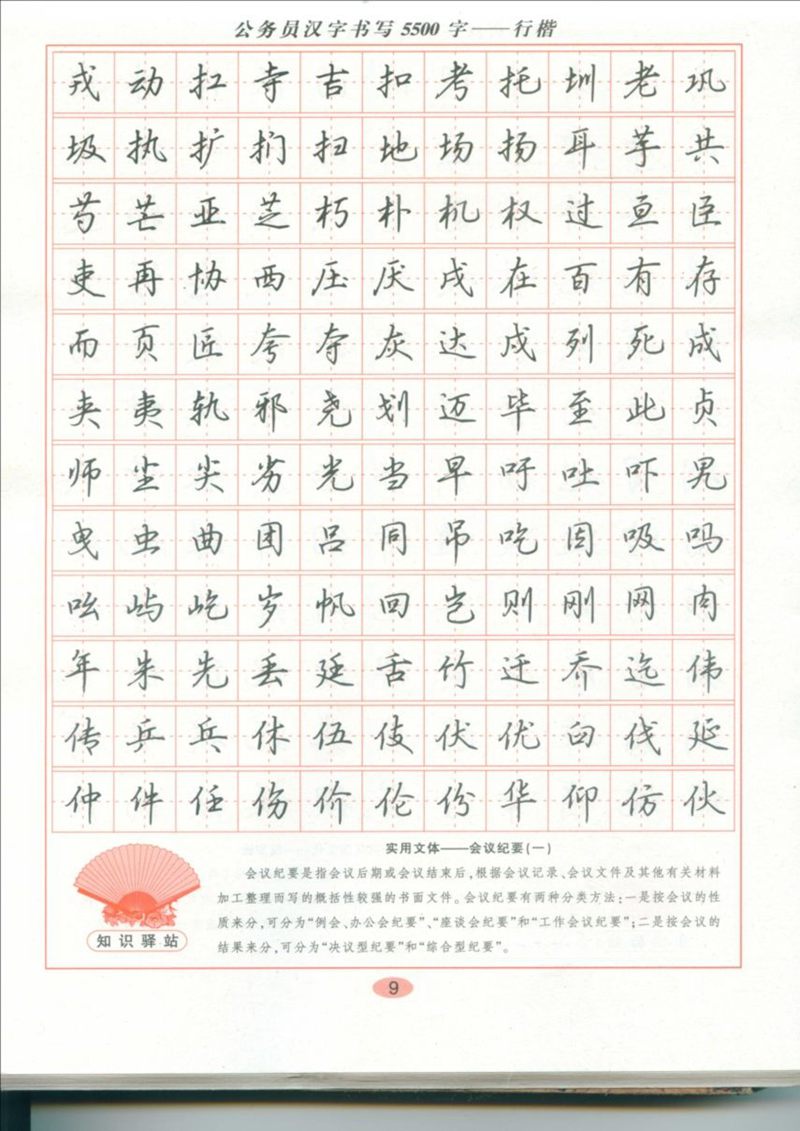 公务员汉字书写5500字——行楷
戎动扛寺吉扣考托圳老巩
圾执扩扪扫地场扬耳芋共
芍芒亚芝朽朴机权过亘臣
吏再协西压厌戌在百有存
而页匠夸夺灰达成列死成
夹夷轨邪尧划迈毕至此贞
师尘尖劣光当早吁吐吓男
曳虫曲团吕同吊吃因吸吗
吆屿屹岁帆回岂则刚网肉
年朱先丢廷舌竹迁乔迄伟
传乒乓休伍伎伏优臼伐延
仲件任伤价伦份华仰仿伙
实用文体——会议纪要(一)
会议纪要是指会议后期或会议结束后,根据会议记录、会议文件及其他有关材料
加工整理而写的概括性较强的书面文件。会议纪要有两种分类方法:一是按会议的性
质来分,可分为“例会、办公会纪要”、“座谈会纪要”和“工作会议纪要”;二是按会议的
结果来分,可分为“决议型纪要”和“综合型纪要”。
知识驿站
9